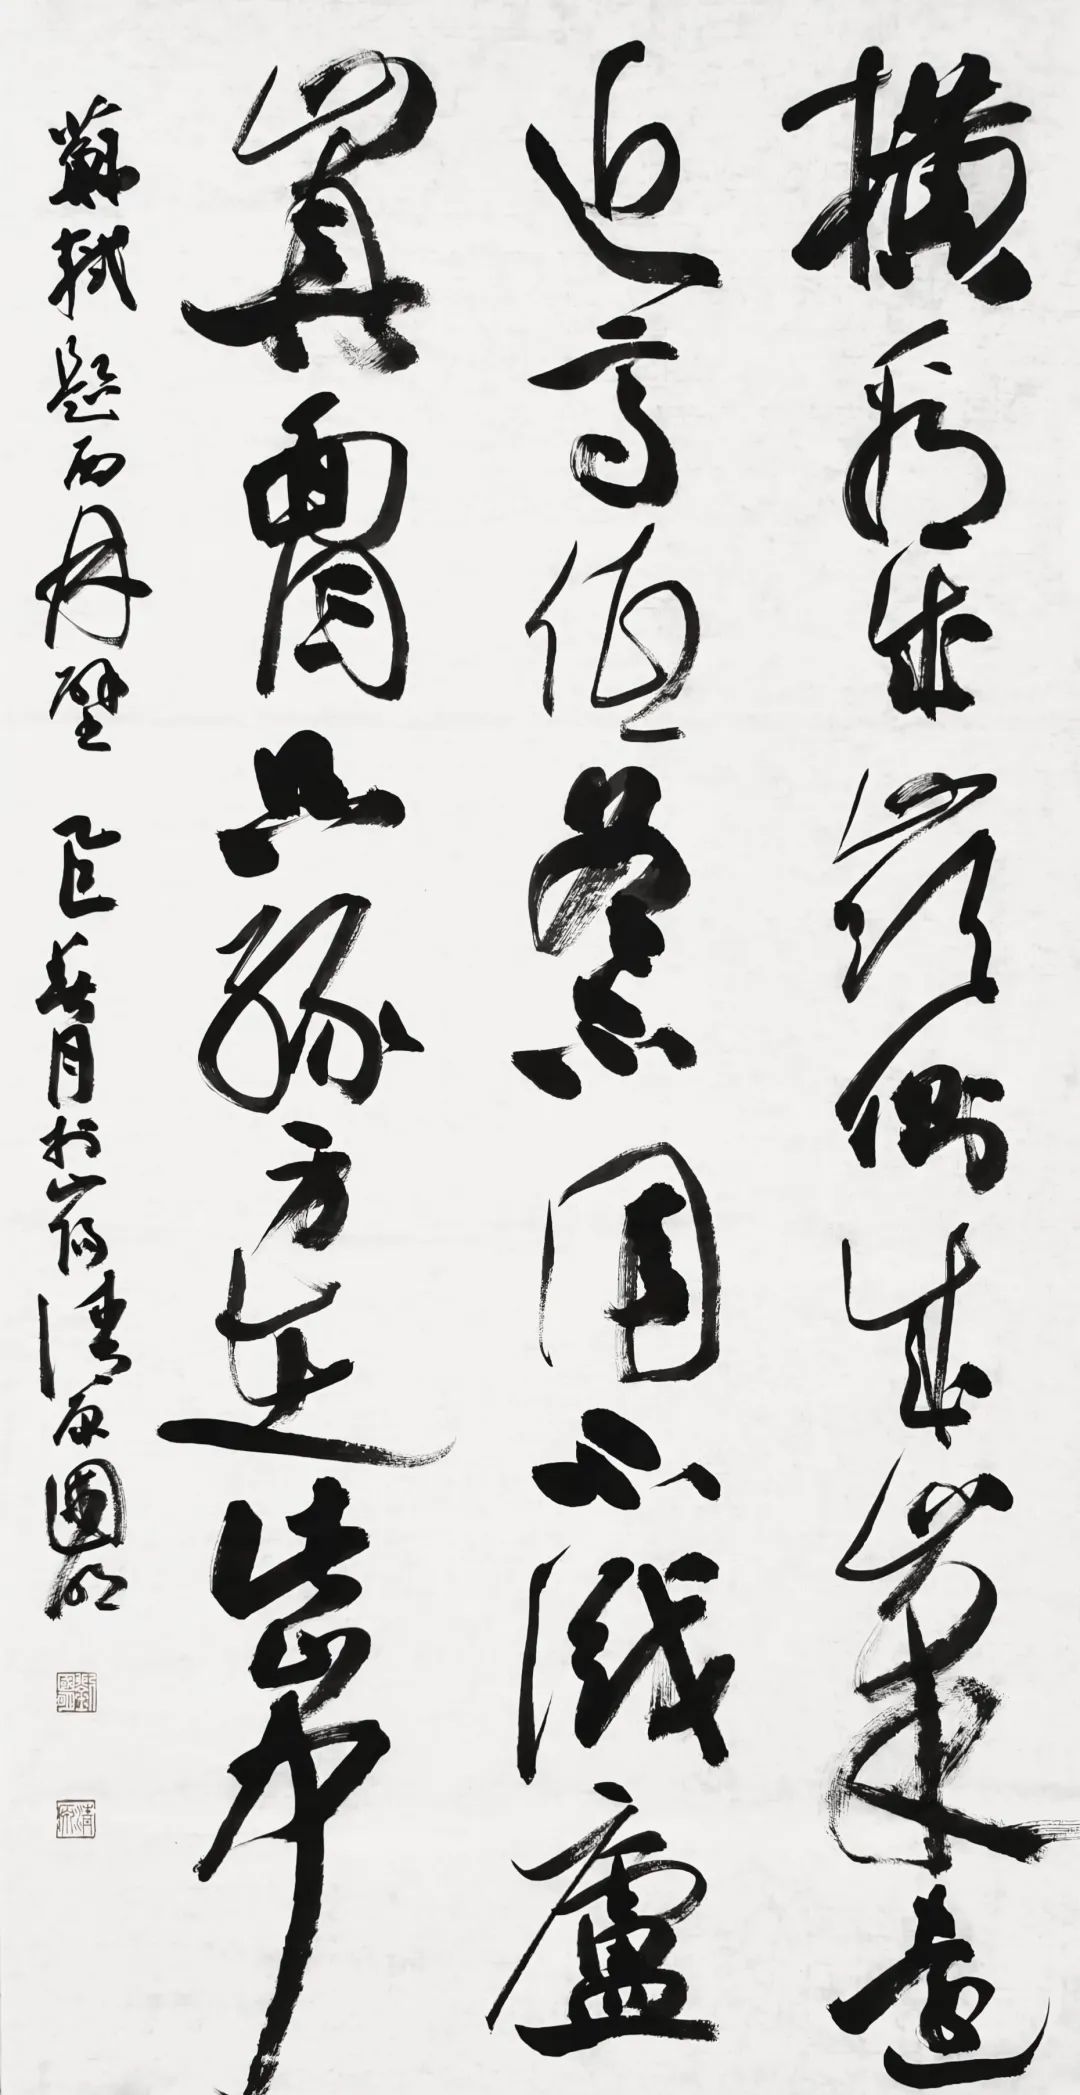 橫看成嶺側成峯遠
近高低各不同不識廬
山真面目只緣身在此山中
蘇軾題西林壁 乙巳春月於山陽清原國明